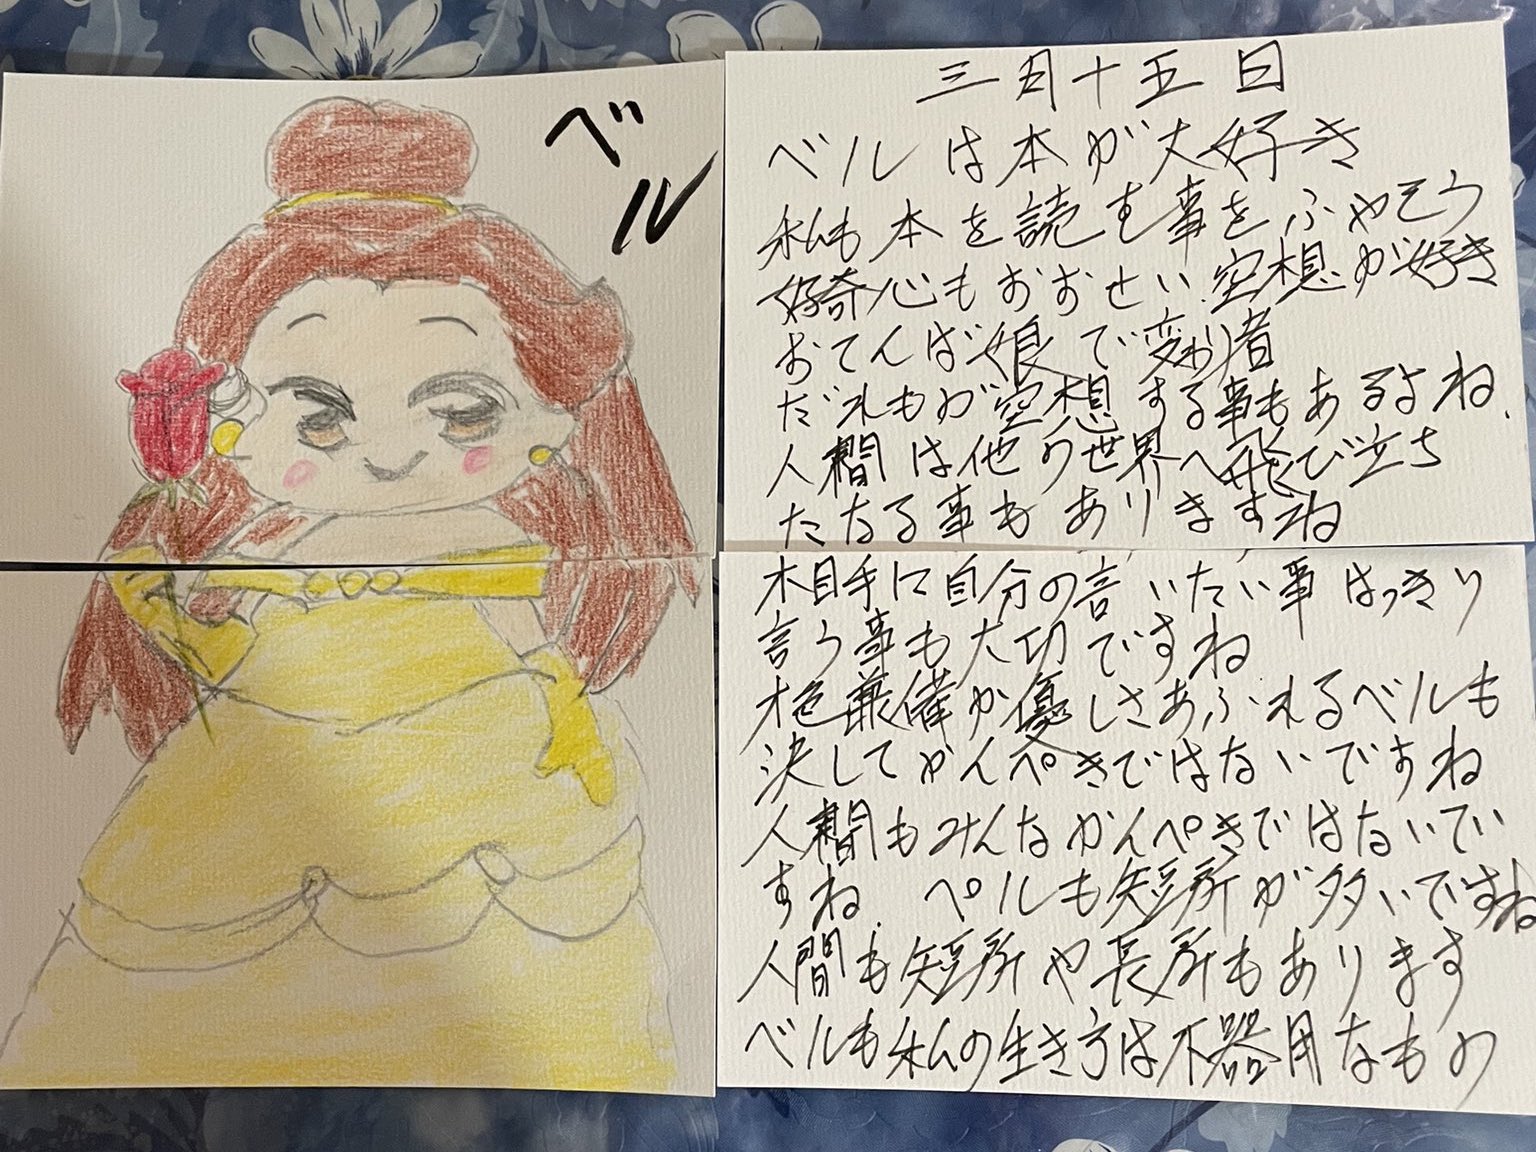 ベル
三月十五日
ベルは本が大好き
私も本を読む事をふやそう
好奇心もおおせい、空想が好き
おてんば娘で変わり者
だれもが空想する事もあるよね、
人間は他の世界へ飛び立ち
たなる事もありますね
相手に自分の言いたい事はっきり
言う事も大切ですね
才色兼備か優しさあふれるベルも
決してかんぺきではないですね
人間もみんなかんぺきではないてい
すね、ベルも短所が多いですね
人間も短所や長所もあります
ベルも私の生き方は不器用なもの